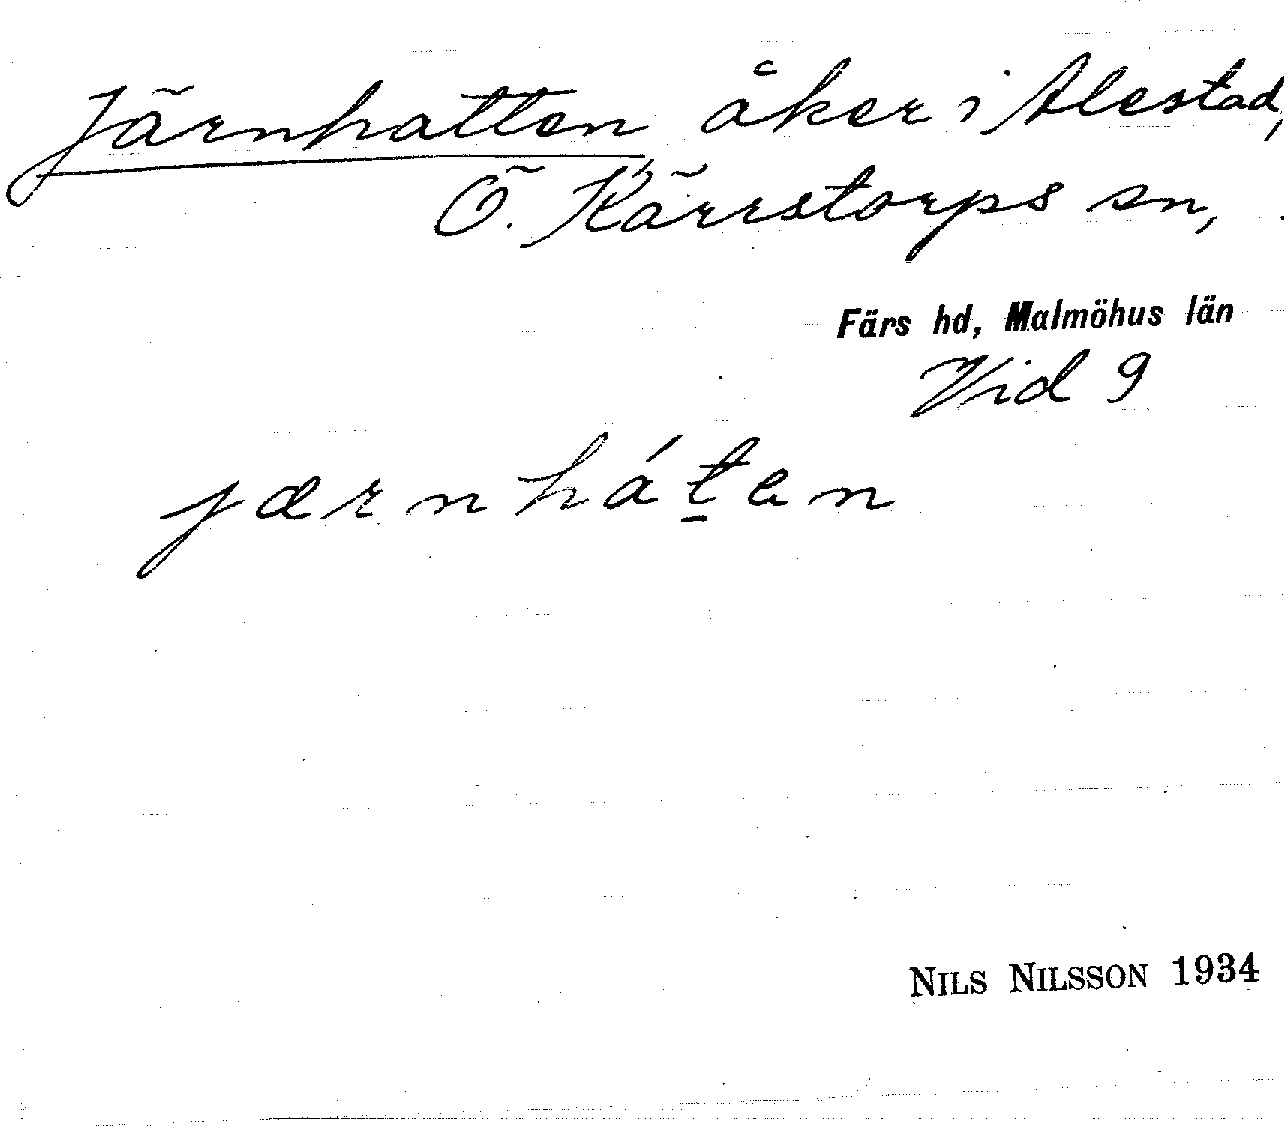 Järnhatten, åker i Alestad,
Ö. Kärrstorps sn,
Färs hd, Malmöhus län
Vid 9
jærnhát̲en
NILS NILSSON 1934